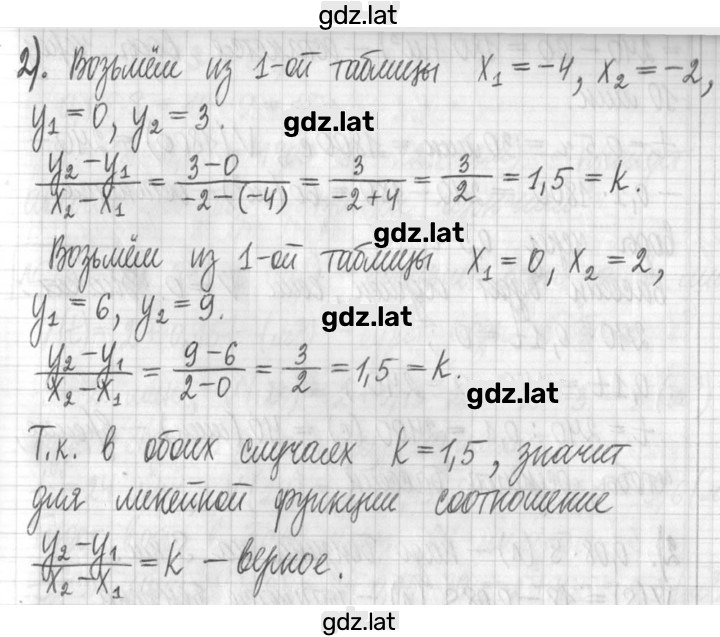 gdz.lat
2). Возьмём из 1-ой таблицы x₁ = -4, x₂ = -2,
y₁ = 0, y₂ = 3.
gdz.lat
(y₂ - y₁)/(x₂ - x₁) = (3 - 0)/(-2 - (-4)) = 3/(-2 + 4) = 3/2 = 1,5 = k.
gdz.lat
Возьмём из 1-ой таблицы x₁ = 0, x₂ = 2,
y₁ = 6, y₂ = 9.
gdz.lat
(y₂ - y₁)/(x₂ - x₁) = (9 - 6)/(2 - 0) = 3/2 = 1,5 = k.
gdz.lat
Т.к. в обоих случаях k = 1,5, значит
для линейной функции соотношение
(y₂ - y₁)/(x₂ - x₁) = k – верное.
gdz.lat